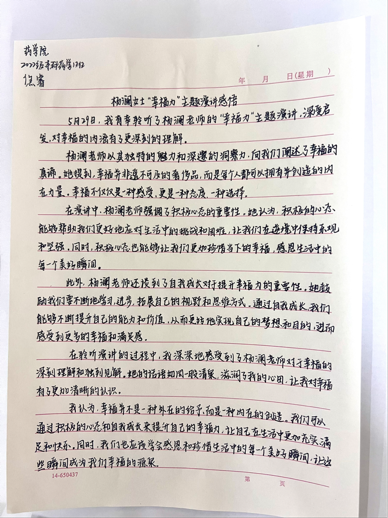 药学院
2022级本科药学12班
年 月 日(星期 )
杨澜女士"幸福力"主题演讲感悟
5月29日,我有幸聆听了杨澜老师的"幸福力"主题演讲,深受启
发,对幸福的内涵有了更深刻的理解。
杨澜老师以其独特的魅力和深邃的洞察力,向我们阐述了幸福的
真谛。她提到,幸福并非遥不可及的奢侈品,而是每个人都可以拥有并创造的内
在力量。幸福不仅仅是一种感受,更是一种态度、一种选择。
在演讲中,杨澜老师强调了积极心态的重要性。她认为,积极的心态,
能够帮助我们更好地应对生活中的挑战和困难,让我们在逆境中保持乐观
和坚强。同时,积极心态也能够让我们更加珍惜当下的幸福,感恩生活中的
每一个美好瞬间。
此外,杨澜老师还谈到了自我成长对于提升幸福力的重要性。她鼓
励我们要不断地学习、进步,拓展自己的视野和思维方式。通过自我成长,我们
能够不断提升自己的能力和价值,从而更好地实现自己的梦想和目的,进而
感受到更多的幸福和满足感。
在聆听演讲的过程中,我深深地感受到了杨澜老师对于幸福的
深刻理解和独到见解。她的话语如同一股清泉,滋润了我的心田,让我对幸福
有了更加清晰的认识。
我认为,幸福并不是一种外在的给予,而是一种内在的创造。我们可以
通过积极的心态和自我成长来提升自己的幸福力,让自己在生活中更加充实、满
足和快乐。同时,我们也应该学会感恩和珍惜生活中的每一个美好瞬间,让这
些瞬间成为我们幸福的源泉。
14-650437
第 页